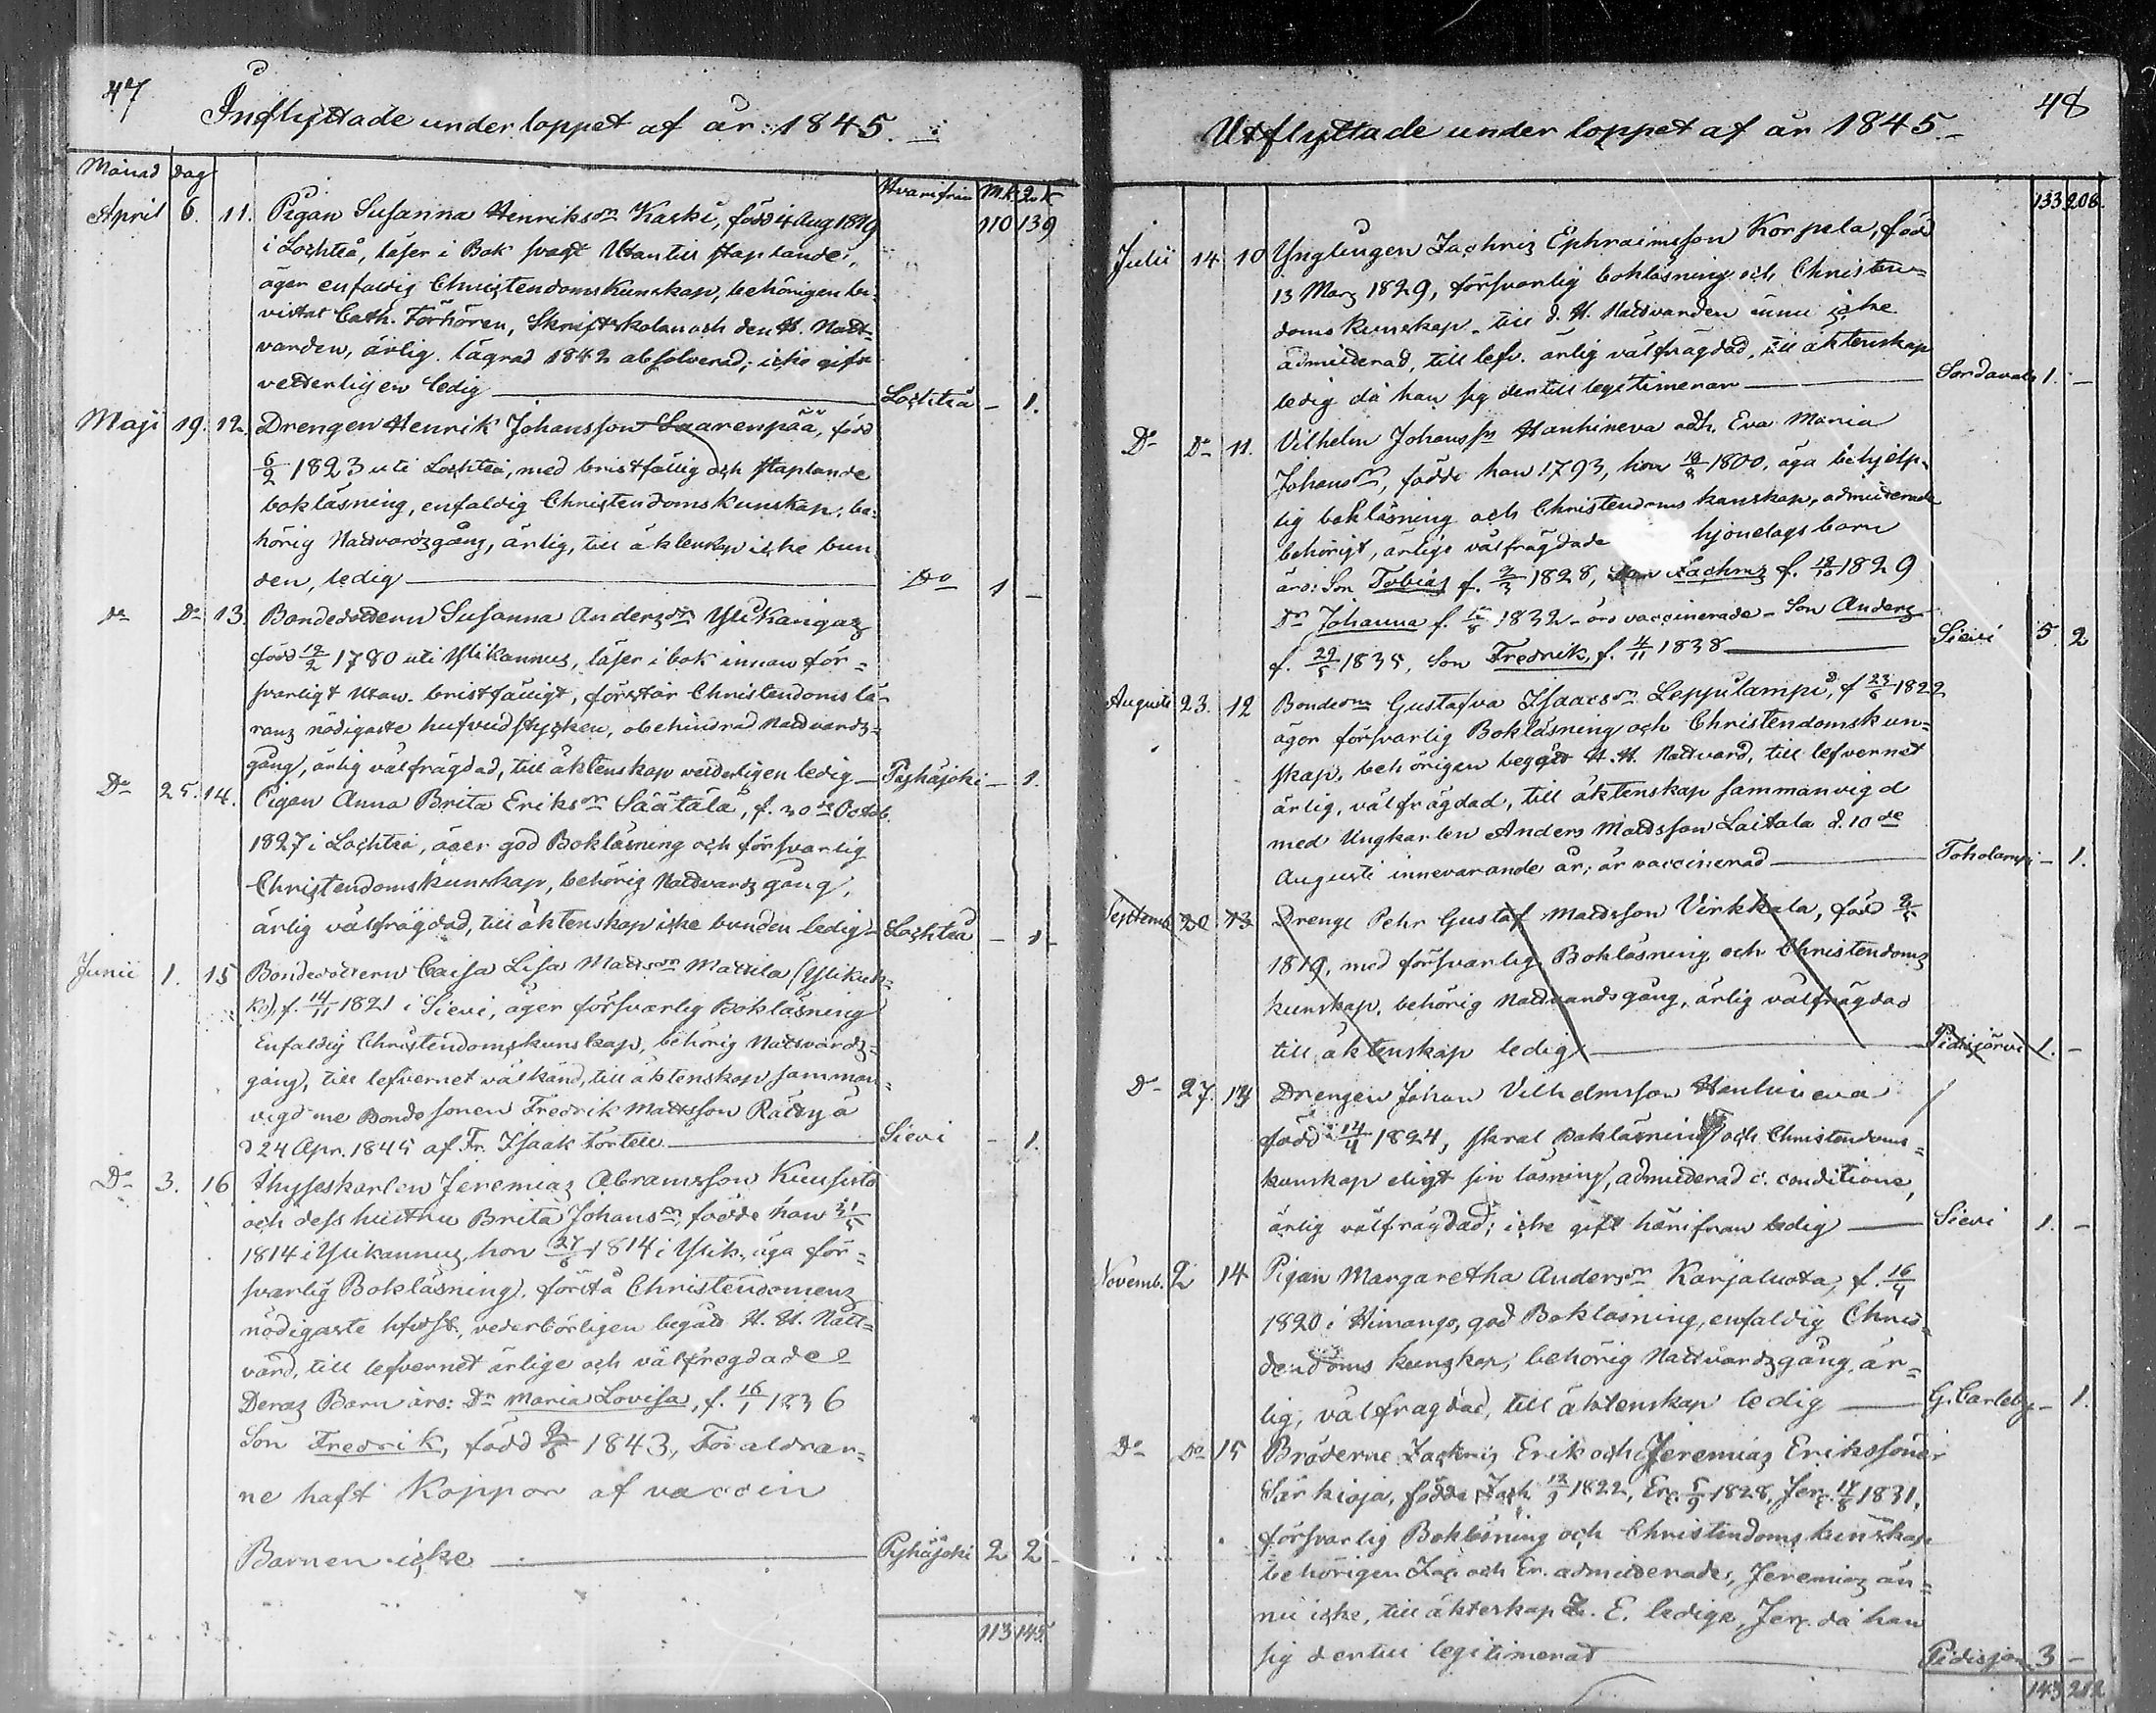 47
Inflyttade under loppet af år 1845.
Månad Dag Hvarifrån M.k. Q.k.
110 139
April 6. 11. Pigan Susanna Henriksdr Kaski, född 4 Aug 1819
i Lochteå, läser i Bok svagt Utantill staplande,
äger enfaldig Christendomskunskap, behörigen be-
vistat Cath. Förhören, Skriftskolan och den H. Natt-
varden, ärlig. lägrad 1842 absolverad; icke gift
vetterligen ledig — Lochteå — 1.
Maji 19. 12. Drengen Henrik Johansson Saarenpää, född
6/2 1823 uti Lochteå, med bristfällig och staplande
bokläsning, enfaldig Christendomskunskap, be-
hörig Nattvardsgång, ärlig, till äktenskap icke bun
den, ledig — Do 1 —
Do Do 13. Bondedottern Susanna Andersdr YliKangas
född 12/2 1780 uti Ylikannus, läser i bok innan för-
svarligt Utan. bristfälligt, förstår Christendoms lä-
rans nödigaste hufvudstycken, obehindrad Nattvards-
gång, ärlig välfrägdad, till äktenskap vetterligen ledig — Pyhäjoki — 1.
Do 25. 14. Pigan Anna Brita Eriksdr Säätälä, f. 20de Octob.
1827 i Lochteå, äger god Bokläsning och försvarlig
Christendomskunskap, behörig Nattvards gång,
ärlig välfrägdad, till äktenskap icke bunden ledig — Lochteå — 1 —
Junii 1. 15 Bondedottern Caisa Lisa Mattsdr Mattila (Ylikuk-
ko), f. 14/11 1821 i Sievi, äger försvarlig Bokläsning
Enfaldig Christendomskunskap, behörig Nattvards-
gång, till lefvernet välkänd, till äktenskap samman-
vigd me Bondesonen Fredrik Mattsson Rättyä
d 24 Apr. 1845 af Fr. Isaak Fortell — Sievi — 1.
Do 3. 16 Ihyseskarlen Jeremias Abramsson Kuusisto
och dess hustru Brita Johansdr, födde han 21/5
1814 i Ylikannus, hon 27/6 1814 i Ylik. äga för-
svarlig Bokläsning, förstå Christendomens
nödigaste hfvdst., vederbörligen begått H. H. Natt-
vard, till lefvernet ärlige och välfregdade
Deras Barn äro: Dr Maria Lovisa, f. 16/1 1836
Son Fredrik, född 9/6 1843, Föräldrar-
ne haft Koppor af vaccin
Barnen icke — Pyhäjoki 2 2 —
113 145
48
Utflyttade under loppet af år 1845.
133 206.
Julii 14 10 Ynglingen Zachris Ephraimsson Korpela, född
13 Mars 1829, försvarlig bokläsning och Christen-
doms kunskap. till d. H. Nattvarden ännu icke
admitterad, till lefv. ärlig välfrägdad, till äktenskap
ledig då han sig dertill legitimerar — Sordavala 1. —
Do Do 11. Vilhelm Johansson Hanhineva och Eva Maria
Johansdr, födde han 1793, hon 18/8 1800, äga behjelp-
lig bokläsning och Christendoms kunskap, admitterade
behörigt, ärlige välfrägdade hjonelags barn
äro: Son Tobias f. 3/3 1828, Son Zachris f. 12/10 1829
Dr Johanna f. 15/8 1832 — äro vaccinerade — Son Anders
f. 29/5 1835, Son Fredrik, f. 4/11 1838 — Sievi 5. 2
Augusti 23. 12 Bondedr Gustafva Isaacsdr Leppilampi, f 23/6 1822
äger försvarlig Bokläsning och Christendomskun-
skap, behörigen begått H. H. Nattvard, till lefvernet
ärlig, välfrägdad, till äktenskap sammanvigd
med Ungkarlen Anders Mattsson Laitala d. 10de
Augusti innevarande år; är vaccinerad — Toholampi — 1.
Septemb 20 13 Drenge Pehr Gustaf Mattsson Virkkala, född 2/5
1819, med försvarlig Bokläsning och Christendoms
kunskap, behörig Nattvardsgång, ärlig välfrägdad
till äktenskap ledig — Pidisjärvi 1. —
Do 27. 13 Drengen Johan Vilhelmsson Hanhineva
född 14/4 1824, skral Bokläsning och Christendoms-
kunskap eligt sin läsning, admitterad c. conditione,
ärlig välfrägdad; icke gift härifran ledig — Sievi 1. —
Novemb. 2 14 Pigan Margaretha Andersdr Karjaluota, f. 16/4
1820 i Himango, god Bokläsning, enfaldig Chris-
dendoms kunskap, behörig Nattvardsgång, är-
lig, välfrägdad, till äktenskap ledig — G. Carleby — 1.
Do Do 15 Bröderne Zachris Erik och Jeremias Erikssöner
Särkioja, födde Zach. 12/9 1822, Er. 5/9 1828, Jer. 17/8 1831,
försvarlig Bokläsning och Christendoms kunskap
behörigen Zac och Er. admitterade, Jeremias än-
nu icke, till äkteskap Z. E. lediga, Jer. då han
sig dertill legitimerat — Pidisjär 3 —
143 212